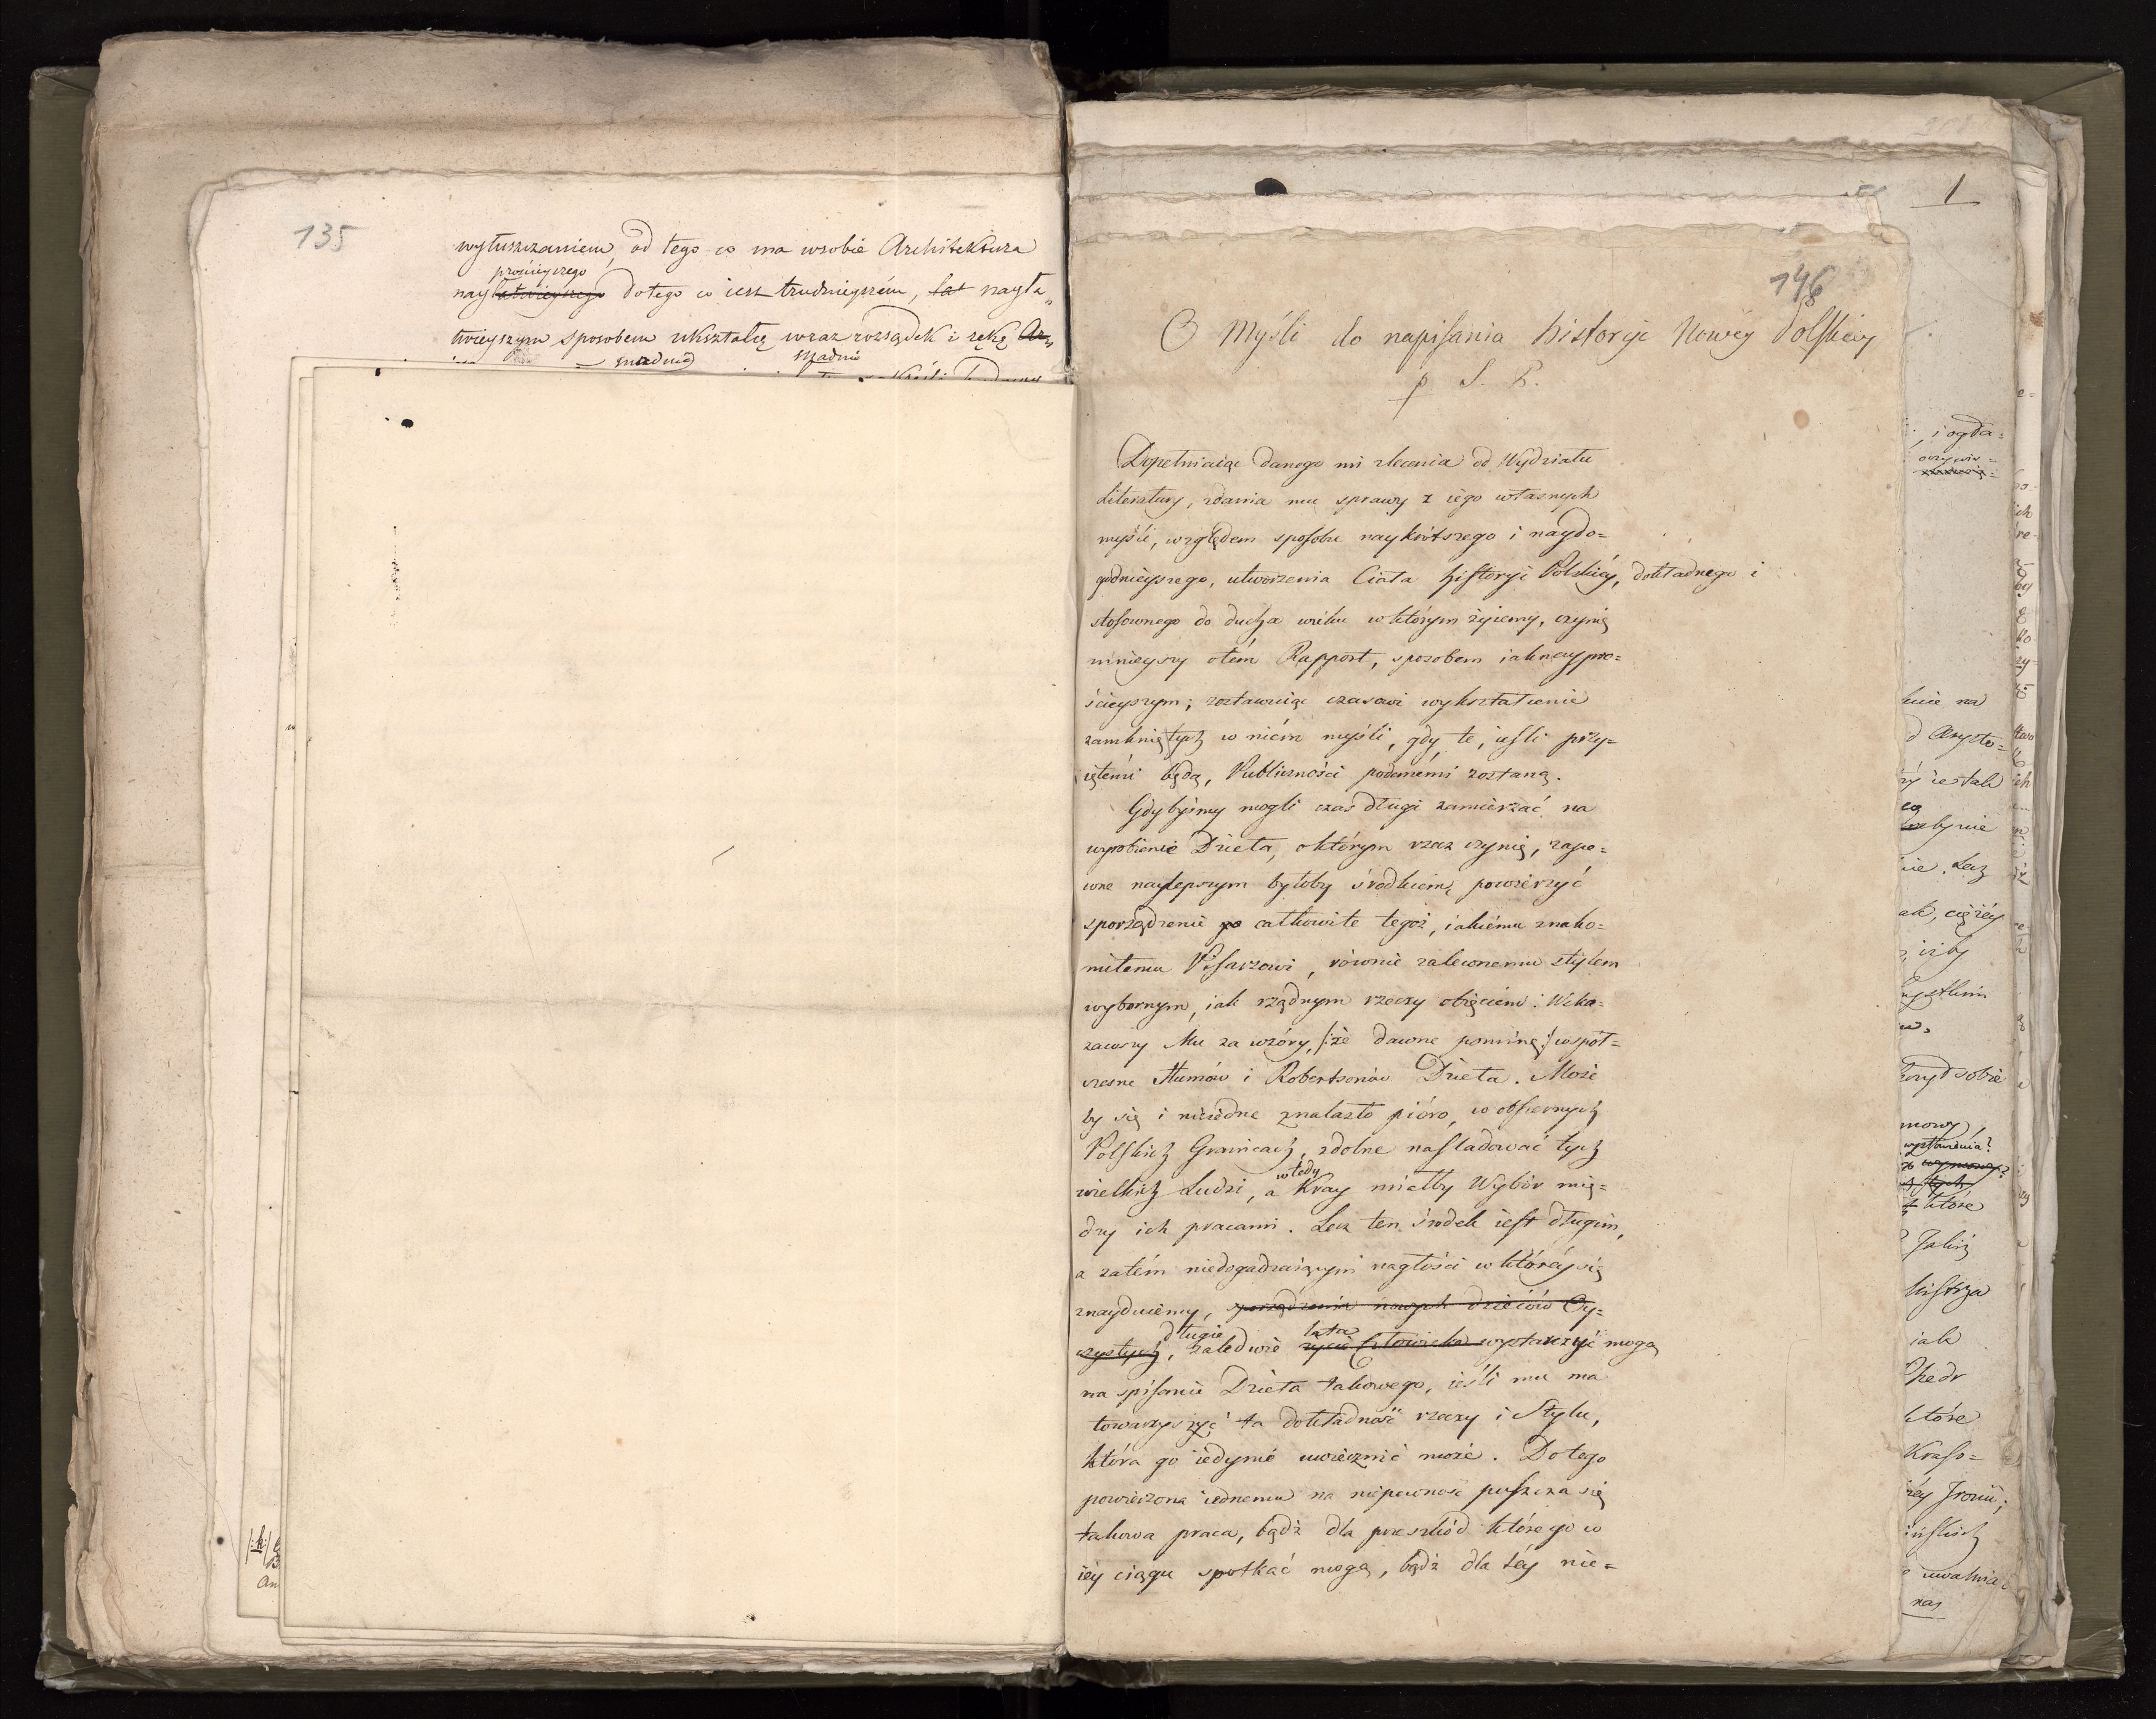 135
wyłuszczaniem, od tego co ma wsobie Architektura
prościeyszego
nayłatwieyszego do tego co iest trudnieyszém, nayła„
twieyszym sposobem ukształcę wraz rozsądek i rękę Ar„
snadnie
1
146
O Myśli do napisania historyi Nowéy Polskiéy
p S. P.
Dopełniaiąc danego mi zlecenia od Wydziału
Literatury, zdania mu sprawy z iego własnych
myśli, względem sposobu naykrótszego i naydo=
godnieyszego, utworzenia Ciała historyi Polskiéy, dokładnego i
stosownego do ducha wieku wktórym żyiemy, czynię
ninieyszy otém Rapport, sposobem iaknaypro=
ścieyszym; zostawuiąc czasowi wykształcenie
zamkniętych w niém myśli, gdy te, iesli przy=
iętemi będą, Publiczności podanemi zostaną.
Gdybyśmy mogli czas długi zamierzać na
wyrobienie Dzieła, októrym rzecz czynię, zape=
wne naylepszym byłoby środkiem, powierzyć
sporządzenie całkowite tegoż, iakiému znako=
mitemu Pisarzowi, równie zalewnemu stylem
wybornym, iak rządnym rzeczy obięciem: Wska=
zawszy Mu za wzóry, /:że dawne pominę:/ wspót=
czesne Humów i Robertsonów Dzieła. Może
by się i nieiedne znalazło pióro, w obszernych
Polskich Granicach, zdolne nasladować tych
wtedy
wielkich Ludzi, a Kray miałby Wybór mię=
dzy ich pracami. Lecz ten środek iest długim,
a zatém niedogadzaiącym nagłości w któréy się
znayduiemy, sporządzenia nowych dzieiów Oy=
długie lata
czystych, zaledwie życie Człowieka wystarczyć mogą
na spisanie Dzieła takowego, iéśli mu ma
towarzyszyć ta dokładność rzeczy i Stylu,
która go iedynie uwiecznić może. Do tego
powierzona iednemu na niepewność puszcza się
takowa praca, bądź dla przeszkód które go w
iéy ciągu spotkać mogą, bądź dla téy nie=
i ogła=
oczywis=
Arysto=
Lecz
iżby
sobie
mowy,
które
iak
które
nas